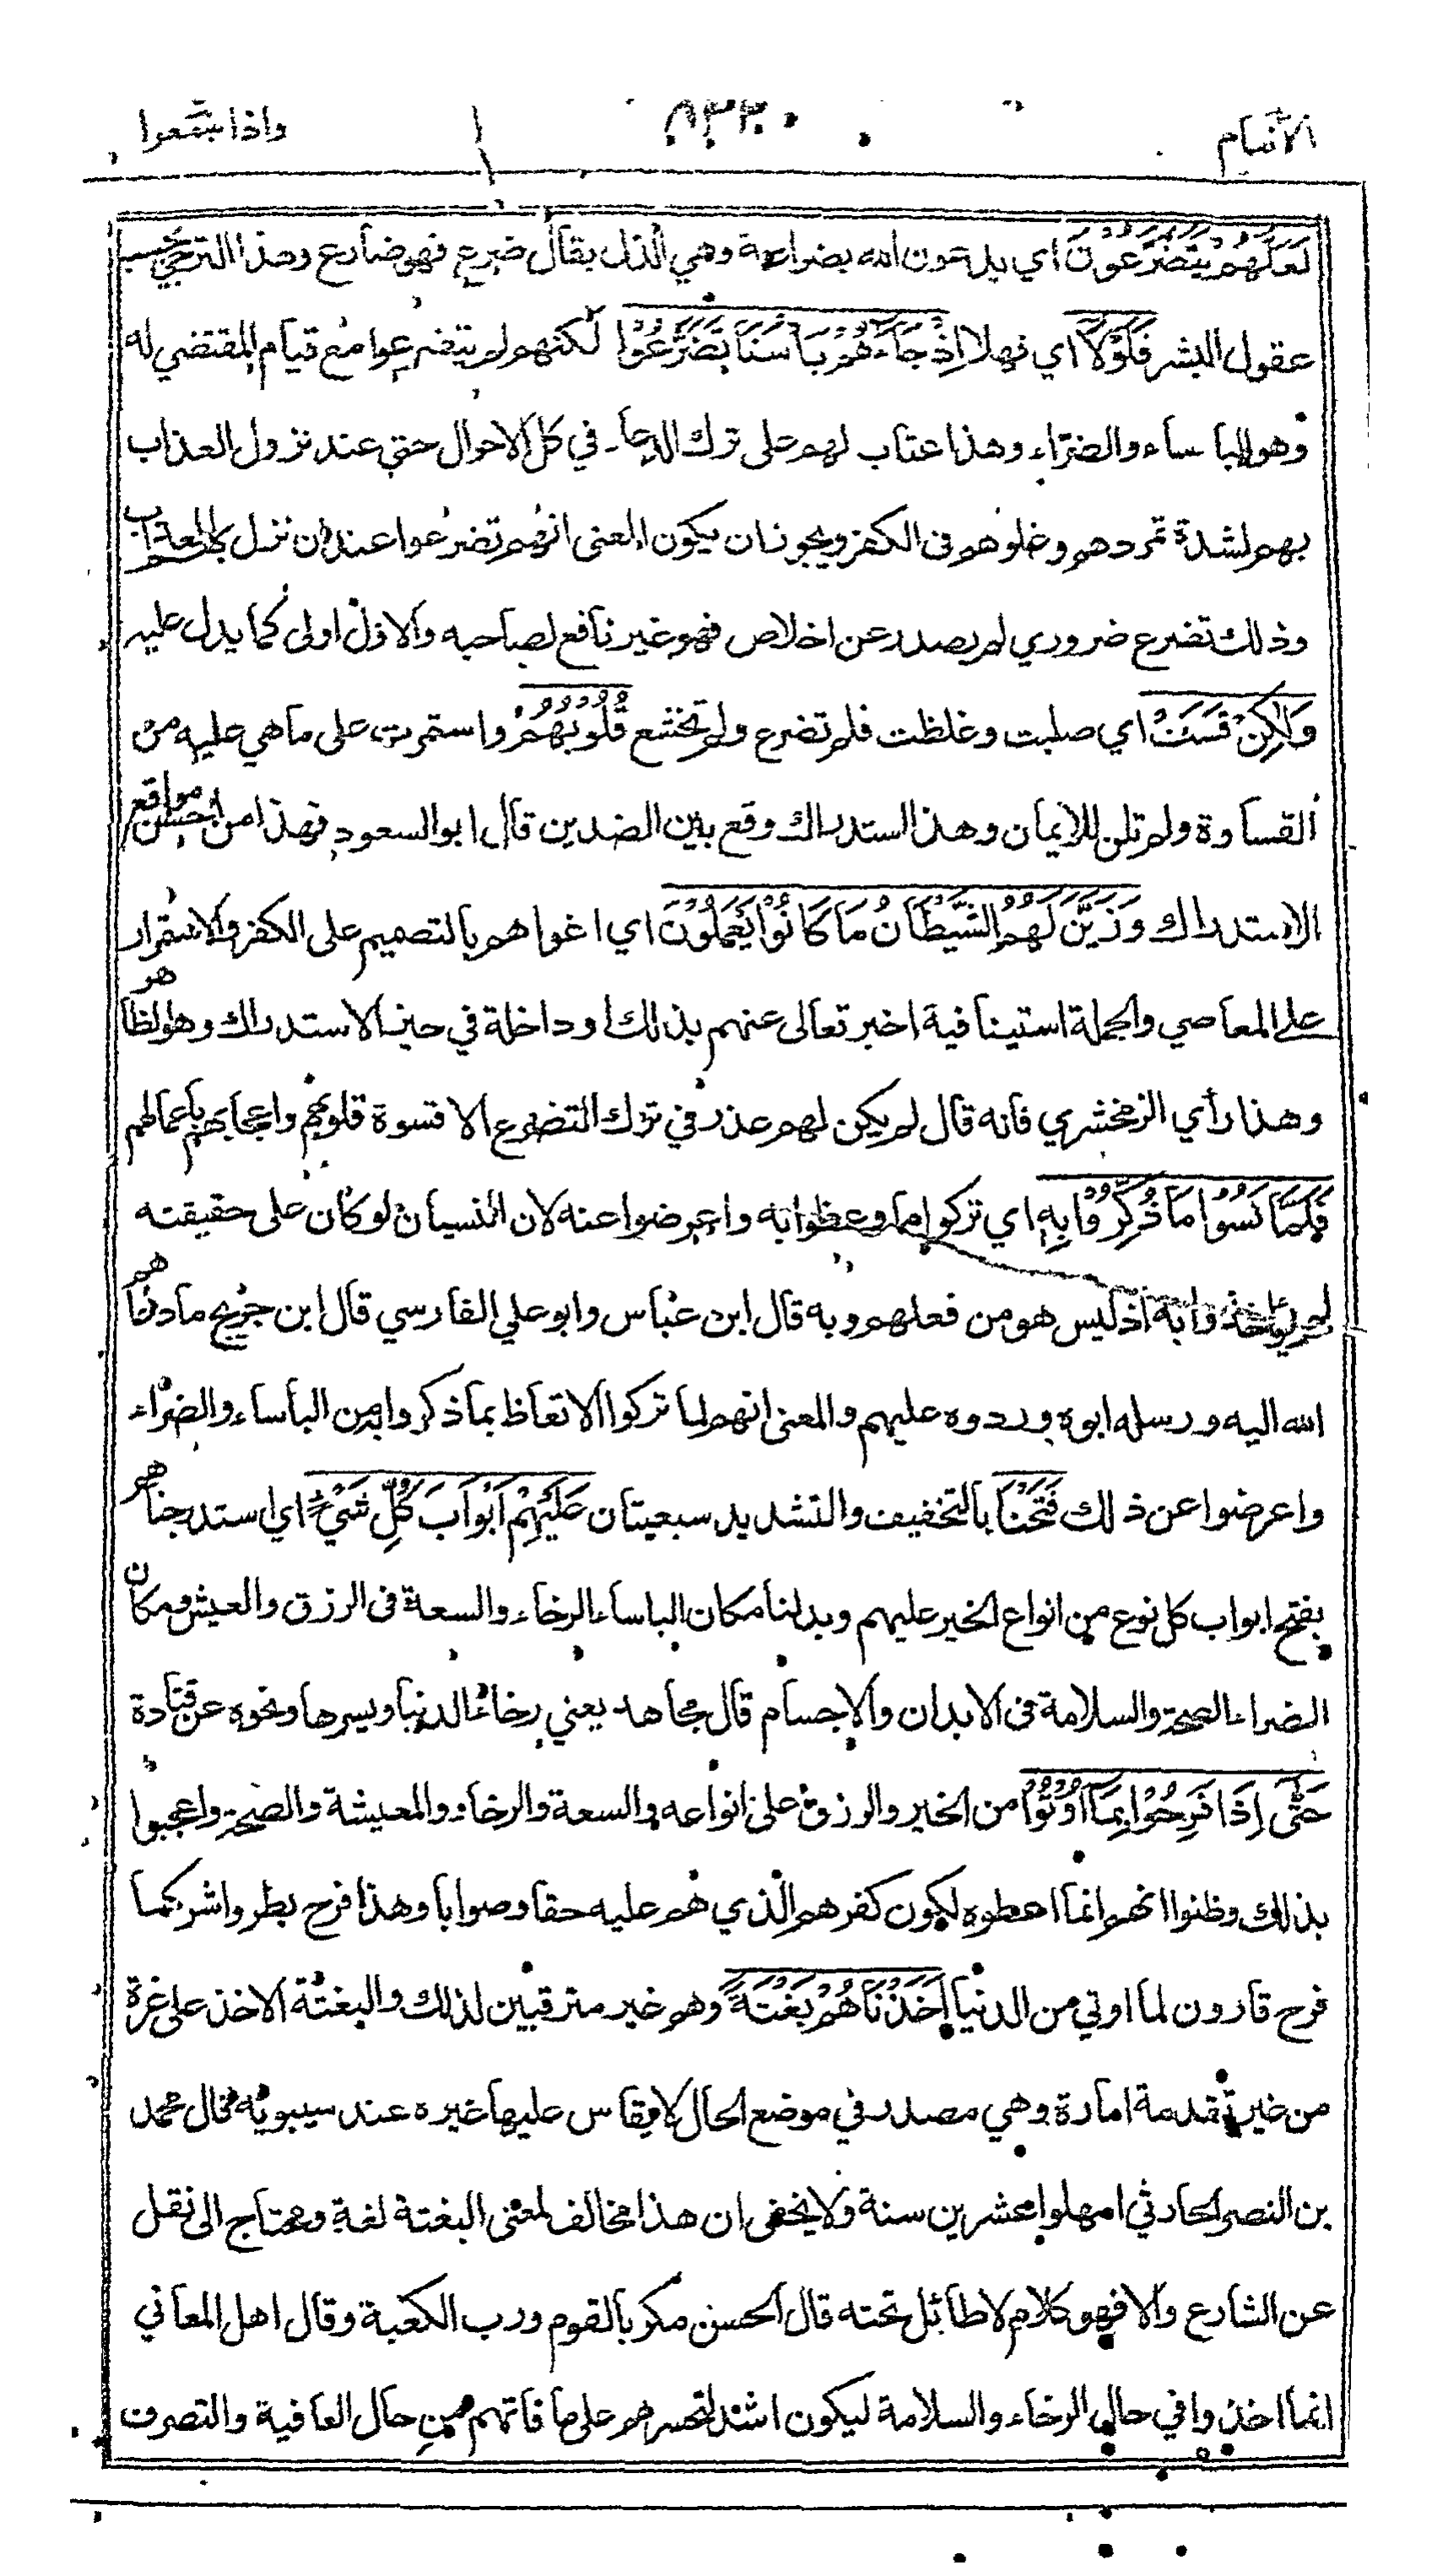 الانعام
واذا سمعوا
لَعَلَّهُمْ يَتَضَرَّعُوْنَ اي يدعون الله بضراعة وهي الذل يقال ضرع فهو ضارع وهذا الترجي بحسب
عقول البشر فَلَوْلَا اي فهلا اِذْ جَآءَهُمْ بَأْسُنَا تَضَرَّعُوْا لكنهم لم يتضرعوا مع قيام المقتضي له
وهو البأساء والضراء وهذا عتاب لهم على ترك الدعاء في كل الاحوال حتى عند نزول العذاب
بهم لشدة تمردهم وغلوهم في الكفر ويجوز ان يكون المعنى انهم تضرعوا عند ان نزل بهم العذاب
وذلك تضرع ضروري لم يصدر عن اخلاص فهو غير نافع لصاحبه والاول اولى كما يدل عليه
وَلٰكِنْ قَسَتْ اي صلبت وغلظت فلم تضرع ولم تخشع قُلُوْبُهُمْ واستمرت على ما هي عليه من
القساوة ولم تلن للايمان وهذا استدراك وقع بين الضدين قال ابو السعود فهذا من احسن مواقع
الاستدراك وَزَيَّنَ لَهُمُ الشَّيْطَانُ مَا كَانُوْا يَعْمَلُوْنَ اي اغواهم بالتصميم على الكفر والاستمرار
على المعاصي والجملة استينافية اخبر تعالى عنهم بذلك او داخلة في حيز الاستدراك وهو الظاهر
وهذا رأي الزمخشري فانه قال لم يكن لهم عذر في ترك التضرع الا قسوة قلوبهم واعجابهم بأعمالهم
فَلَمَّا نَسُوْا مَا ذُكِّرُوْا بِهٖ اي تركوا ما وعظوا به واعرضوا عنه لان النسيان لو كان على حقيقته
لم يؤاخذوا به اذ ليس هو من فعلهم وبه قال ابن عباس وابو علي الفارسي قال ابن جريج ما دعاهم
الله اليه ورسله ابوه وردوه عليهم والمعنى انهم لما تركوا الاتعاظ بما ذكروا به من البأساء والضراء
واعرضوا عن ذلك فَتَحْنَا بالتخفيف والتشديد سبعيتان عَلَيْهِمْ اَبْوَابَ كُلِّ شَيْءٍ اي استدرجناهم
بفتح ابواب كل نوع من انواع الخير عليهم وبدلنا مكان البأساء الرخاء والسعة في الرزق والعيش ومكان
الضراء الصحة والسلامة في الابدان والاجسام قال مجاهد يعني رخاء الدنيا ويسرها ونحوه عن قتادة
حَتّٰى اِذَا فَرِحُوْا بِمَا اُوْتُوْا من الخير والرزق على انواعه والسعة والرخاء والمعيشة والصحة واعجبوا
بذلك وظنوا انهم انما اعطوه لكون كفرهم الذي هم عليه حقا وصوابا وهذا فرح بطر واشر كما
فرح قارون لما اوتي من الدنيا اَخَذْنَاهُمْ بَغْتَةً وهم غير مترقبين لذلك والبغتة الاخذ على غرة
من غير تقدمة امارة وهي مصدر في موضع الحال لا يقاس عليها غيره عند سيبويه قال محمد
بن النضر الحارثي امهلوا عشرين سنة ولا يخفى ان هذا مخالف لمعنى البغتة لغة ومحتاج الى نقل
عن الشارع والا فهو كلام لا طائل تحته قال الحسن مكر بالقوم ورب الكعبة وقال اهل المعاني
انما اخذوا في حال الرخاء والسلامة ليكون اشد لتحسرهم على ما فاتهم من حال العافية والتصرف